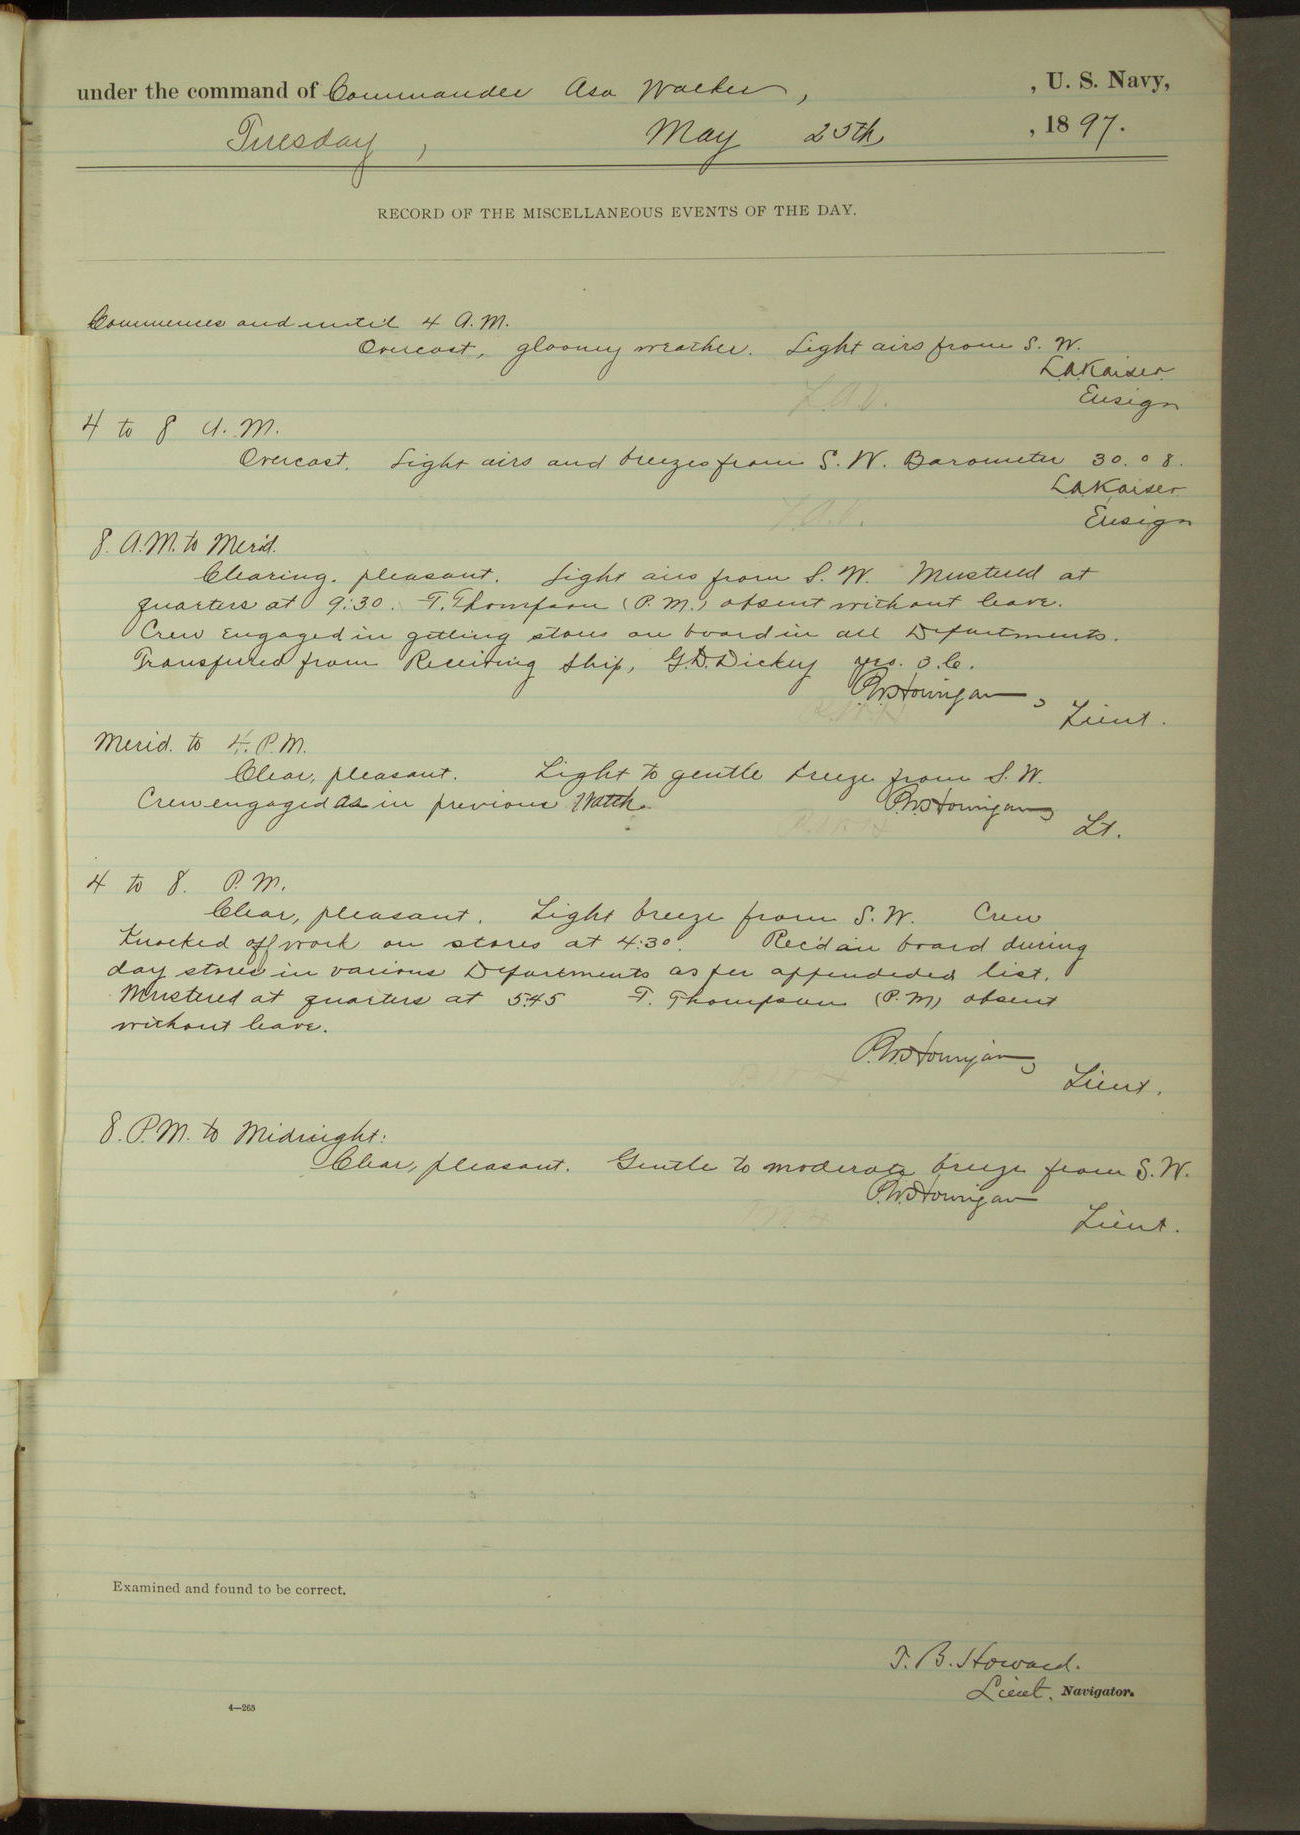 under the command of Commander Asa Walker, , U. S. Navy,
Tuesday, May 25th, , 1897.
RECORD OF THE MISCELLANEOUS EVENTS OF THE DAY.
Commences and until 4 A.M.
Overcast, gloomy weather. Light airs from S. W.
L.A. Kaiser
Ensign
4 to 8 A. M.
Overcast. Light airs and breezes from S. W. Barometer 30.08.
L.A. Kaiser
Ensign
8. A.M. to Merid.
Clearing. pleasant. Light airs from S. W. Mustered at
quarters at 9:30. T. Thompson (P.M.) absent without leave.
Crew Engaged in getting stores on board in all Departments.
Transferred from Receiving Ship, G.D. Dickey
P.W. Hourigan, Lieut.
Merid. to 4. P.M.
Clear, pleasant. Light to gentle breeze from S. W.
Crew engaged as in previous Watch.
P.W. Hourigan, Lt.
4 to 8. P.M.
Clear, pleasant. Light breeze from S. W. Crew
Knocked off work on stores at 4:30. Rec'd on board during
day stores in various Departments as per appendeded list.
Mustered at quarters at 5:45 T. Thompson (P.M) absent
without leave.
P.W. Hourigan, Lieut.
8. P.M. to Midnight:
Clear, pleasant. Gentle to moderate breeze from S. W.
P.W. Hourigan
Lieut.
Examined and found to be correct.
T. B. Howard.
Lieut. Navigator.
4—265